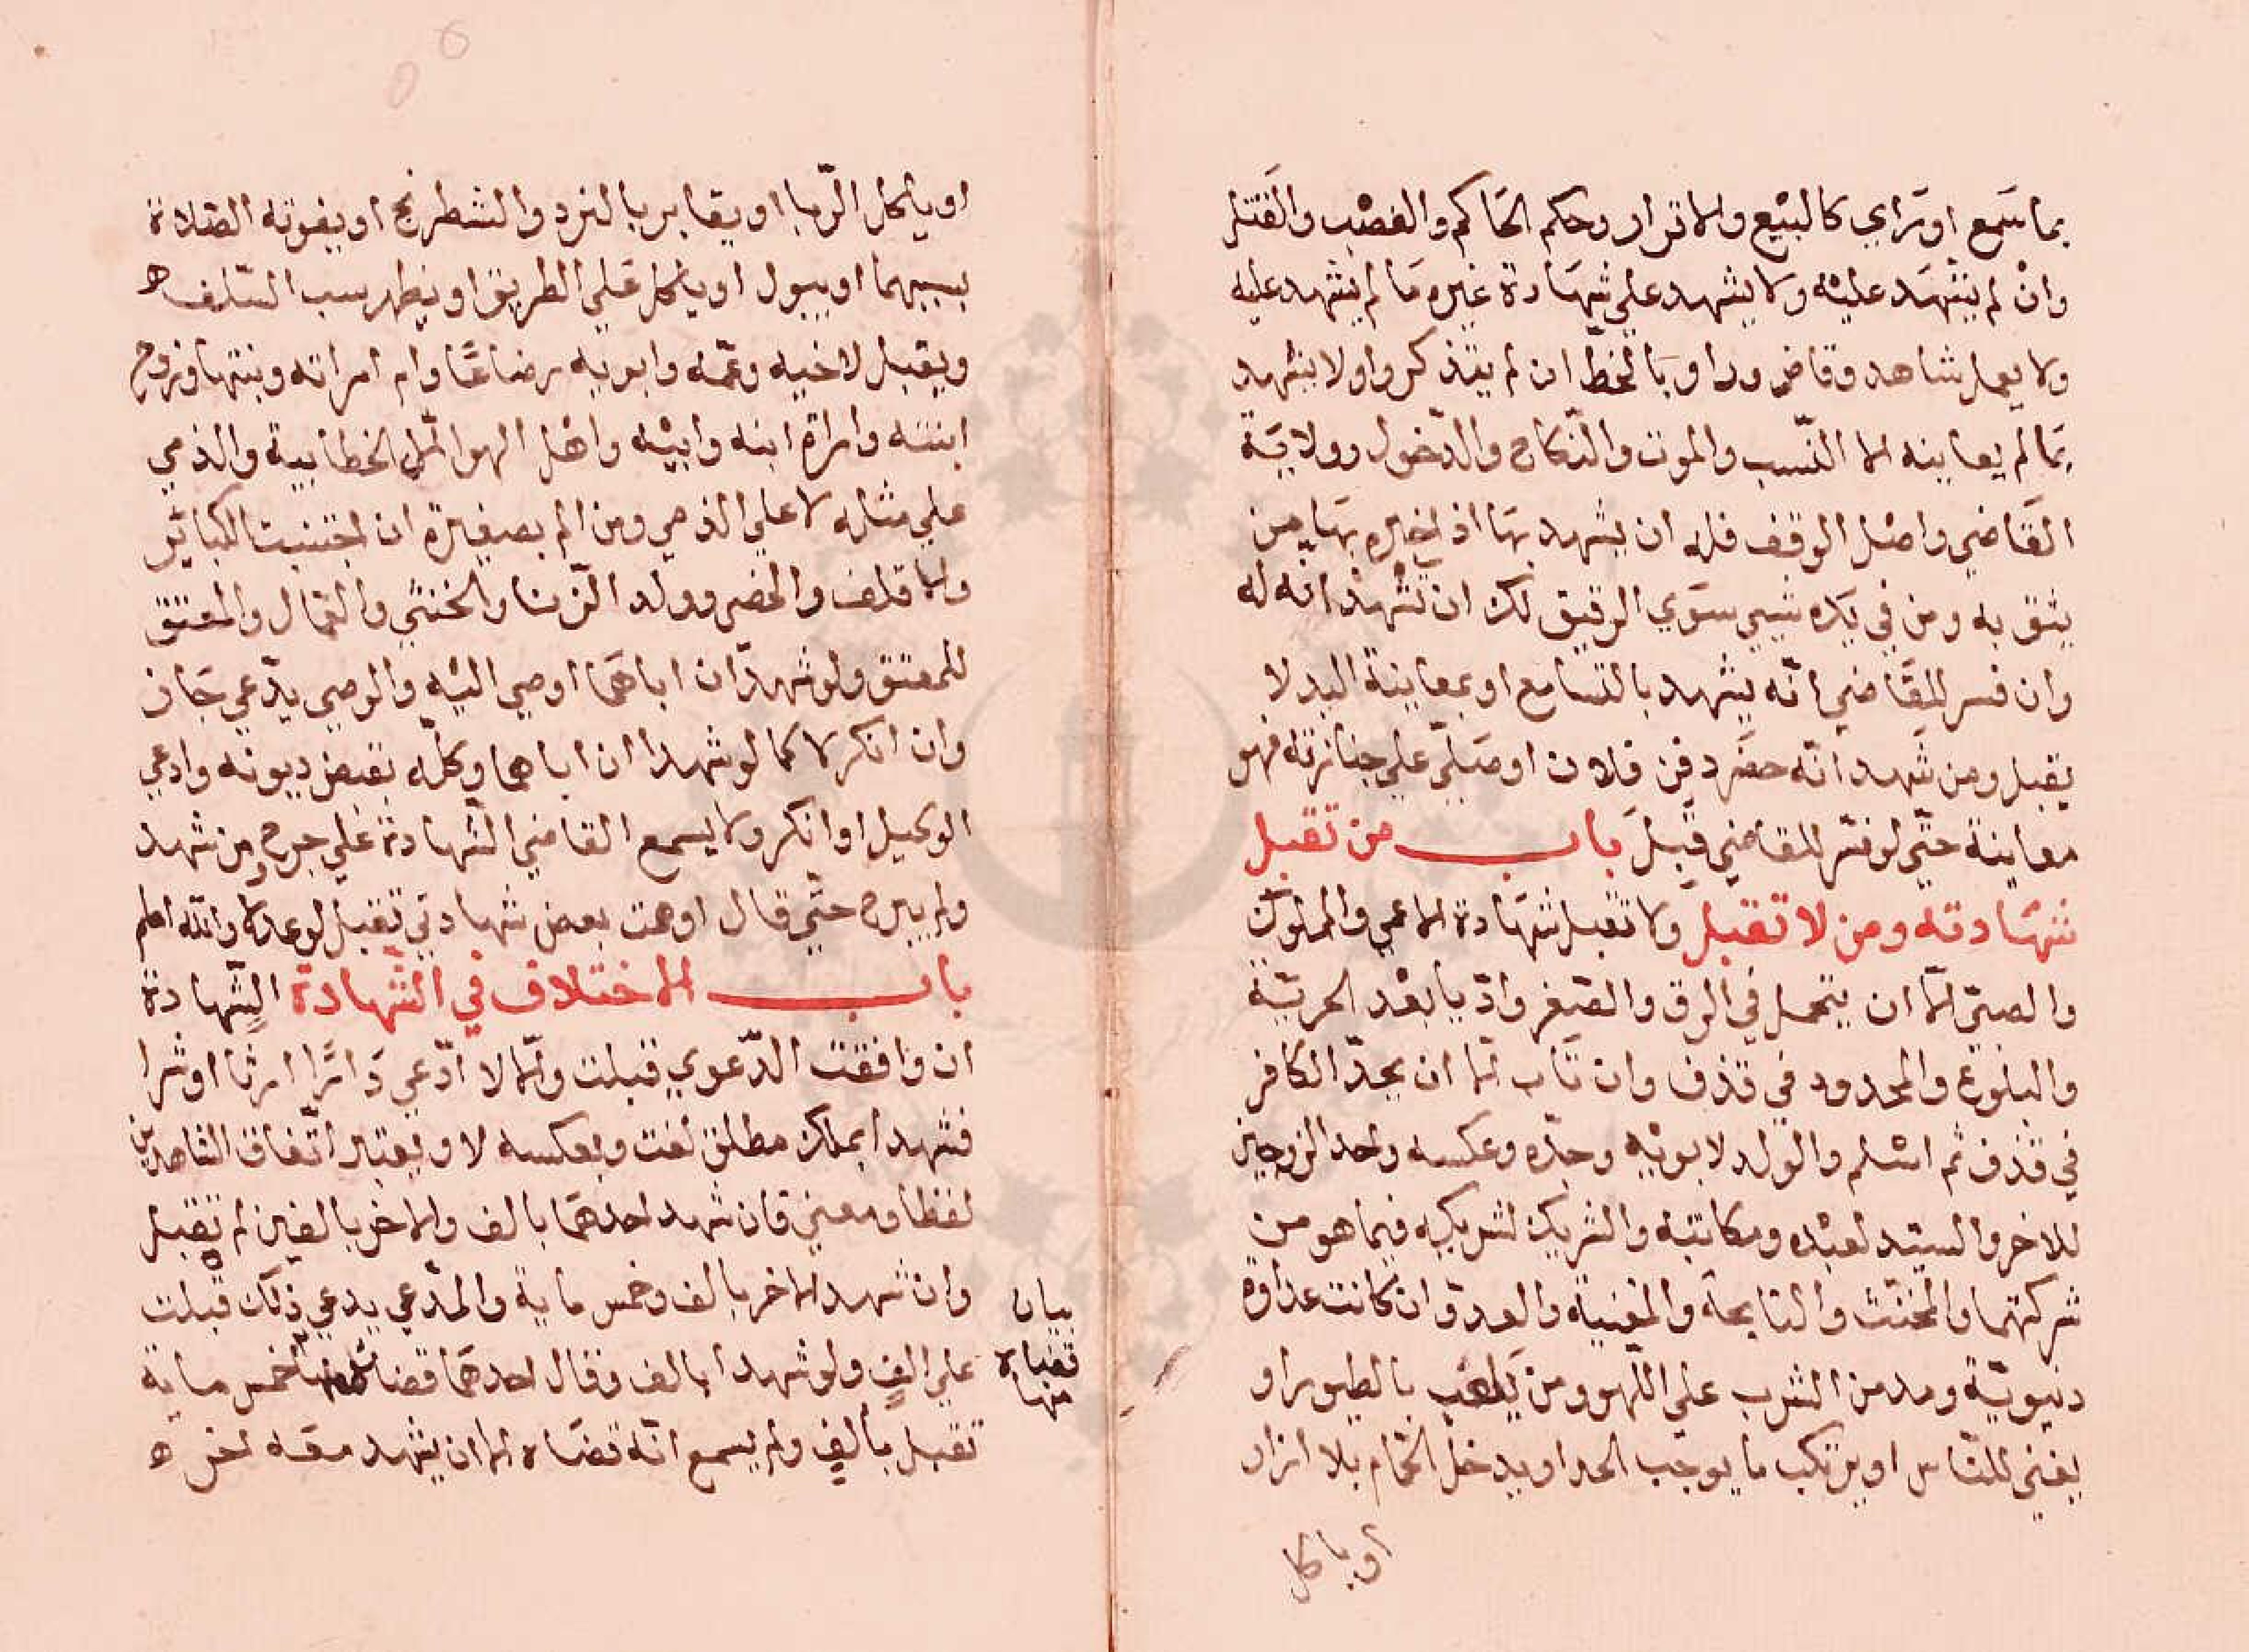 بما سَمع او رَاي كالبيْع والاقرار وحكم الحَاكم والغصْب والقَتل
وانْ لم يشهَد عليْه ولا يشهد علي شهَادة غيره مَا لم يشهد عليه
ولا يعمل شاهد وقاض وراو بَالخطّ ان لم يتذكروا ولا يشهد
بمَا لم يعاينه الا النّسب والموت والنّكاح والدّخول وولايَة
القَاضي واصْل الوقف فله ان يشهد بهَا اذ اخبره بهَا من
يثق به ومن في يَده شيي سوَي الرقيق لك ان تشهدَ انه له
وان فسر للقَاضي انّه يشهد بالتسامع او بمعاينة اليد لا
يقبل ومن شَهد انّه حضَر دفن فلان او صَلّي علي جنازته فهو
معاينة حتّي لو فسّر للقاضي قُبلَ باب من تقبل
شهَادته ومن لا تقبل ولا تقبل شهَادة الاعمي والمملوك
والصبيّ الّا ان يتحمل في الرق والصّغر وادّيا بعْد الحريّة
والبلوغ والمحدود في قذف وان تَاب الّا ان يحدّ الكافر
في قذف ثم اسْلم والولد لابويْه وجدّه وعكسه واحد الزوجين
للاخر والسيّد لعبْده ومكاتبه والشريك لشريكه فيما هو من
شركتهما والمخنّث والنايحة والمغنية والعدوّ ان كانت عداوة
دنيويّة ومدمن الشرب علي اللّهو ومن يَلعب بالطيور او
يغنّي للنّاس او يرتكب ما يوجب الحد او يدخل الحمّام بلا ازار
او ياكل
او ياكل الرّبا او يقامر بالنرد والشطرنج او يفوته الصّلاة
بسببهما او يبول او ياكل علَي الطريق او يظهر سب السّلف ه
ويقبل لاخيه وعمّه وابويه رضاعًا وام امراته وبنتها وزوج
ابنته وامراة ابنه وابيْه واهْل الهوا الّا الخطابية والذمي
علي مثله لا علي الذمي ومن الم بصغيرة ان اجتنبت الكبائر
والاقلف والخصي وولد الزّنا والخنثي والعمال والمعتق
للمعتق ولو شهدَا ان اباهمَا اوصي اليْه والوصي يدّعي جَاز
وان انكر لا كما لو شهدا ان اباهما وكلّه بقبض ديونه وادعي
الوكيل او انكر ولا يسمع القاضي الشّهادة علي جرح ومن شهد
ولم يبرح حتّي قال اوهمت بعض شهادتي تقبل لو عدلا والله اعلم
باب الاختلاف في الشّهادة الشّهادة
ان وَافقت الدّعوي قبلت والّا لا ادّعي دَارًا ارثا او شرا
فشهدا بملك مطلق لغت وبعكسه لا ويعتبر اتّفاق الشاهدين
لفظا ومعني فان شهد احدهمَا بالف والاخر بالفين لم تقبل
وان شَهد الاخر بالف وخمس ماية والمدّعي يدعي ذلك قبلت
علي الف ولو شهدا بالف وقال احدهمَا قضاه منها خمس ماية
تقبل بألفٍ ولم يسمع انّه قضَاه الا ان يشهد معَه اخر ه
بيان
قضاه
منها